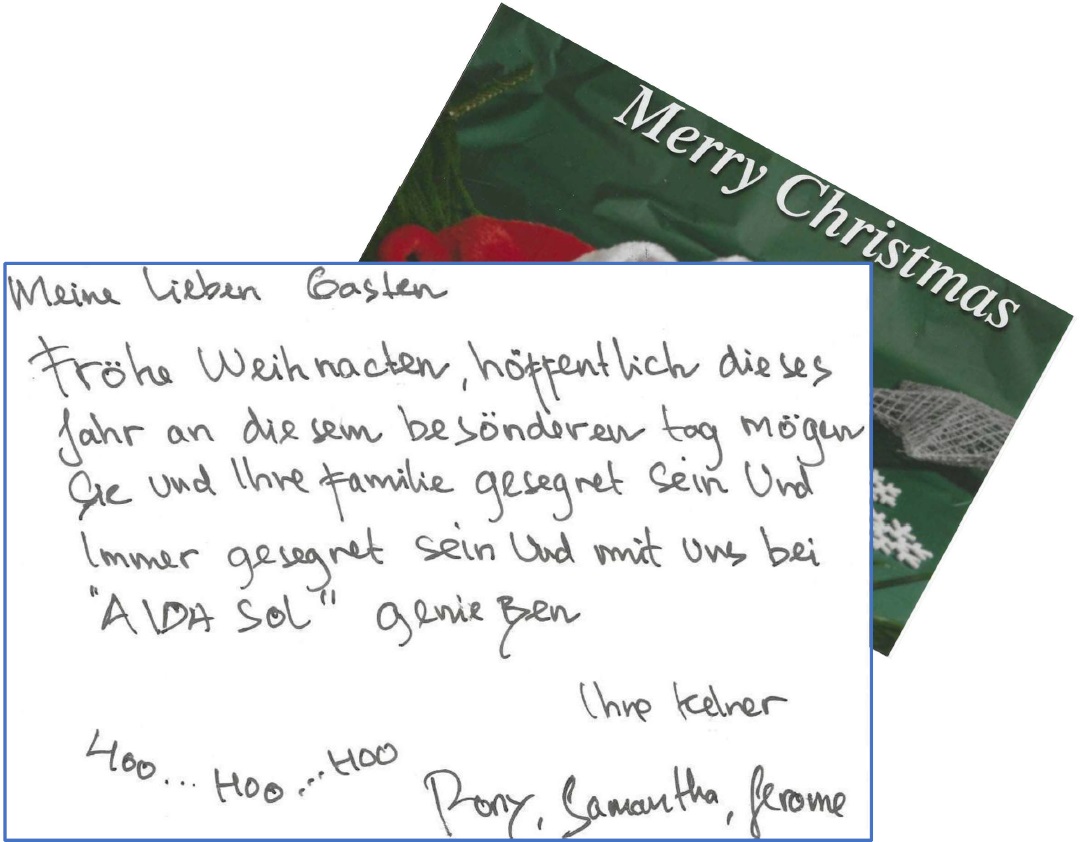 Merry Christmas
Meine lieben Gasten
Fröhe Weihnacten, höffentlich dieses
Jahr an diesem besönderen tag mögen
Sie und Ihre familie gesegnet sein Und
Immer gesegnet sein Und mit uns bei
"AIDA SOL" genießen
Ihre kelner
Hoo... Hoo... Hoo
Rony, Samantha, Jerome